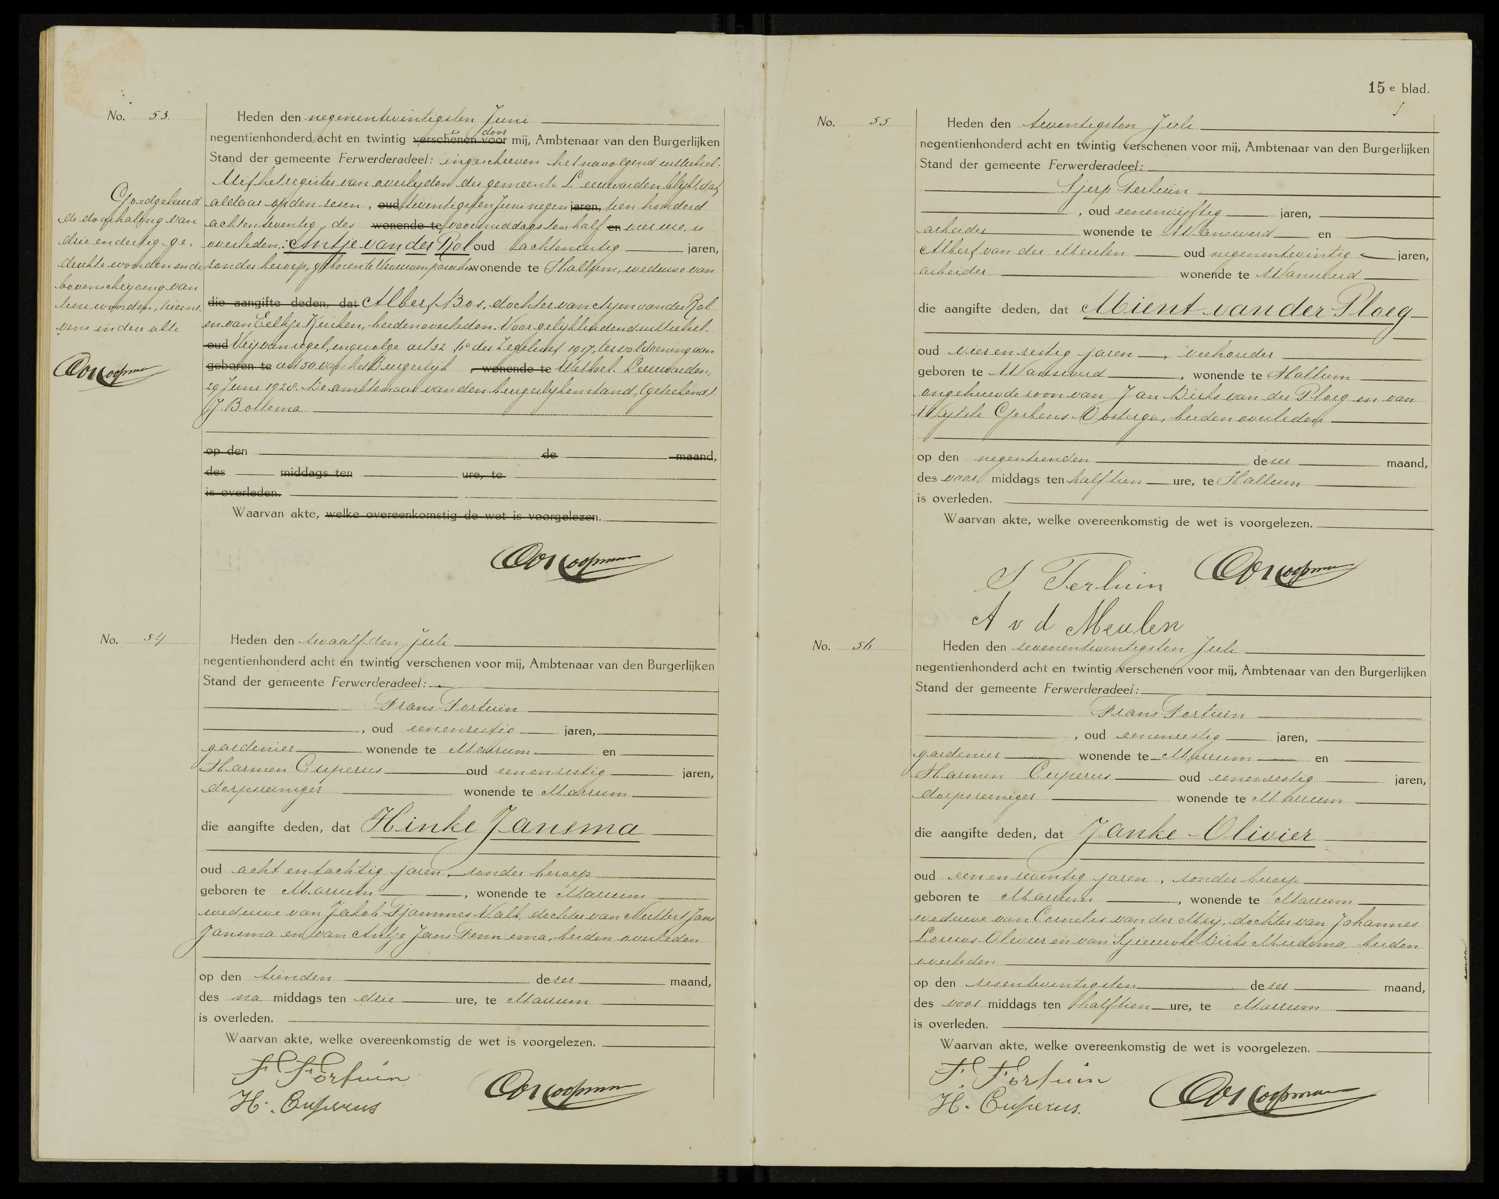 No. 53.
Heden den negenentwintigsten Juni
negentienhonderd acht en twintig verschenen voor door mij, Ambtenaar van den Burgerlijken
Stand der gemeente Ferwerderadeel: ingeschreven het navolgend uittreksel.
Uit het register van overlijden der gemeente Leeuwarden blijkt dat
aldaar op den zesen twintigsten Juni negen jaren, tien honderd
acht en twintig, des wonende te voormiddags ten half en vier ure, is
overleden: Antje van der Kol oud tachtig jaren,
zonder beroep, geboren te wonende te Hallum, weduwe van
die aangifte deden, dat Albert Bos, dochter van Arjen van der Kol
en van Eelkje Keuken, beiden overleden. Voor gelijkluidend uittreksel.
oud Vrij van zegel, ingevolge art 32 der Zegelwet 1917, ter voldoening aan
geboren te art 50 van het Burgerlijk wonende te Wetboek. Leeuwarden,
29 Juni 1928. De ambtenaar van den burgerlijken stand, (geteekend)
J. Bottema
op den de maand,
des middags ten ure, te
is overleden.
Waarvan akte, welke overeenkomstig de wet is voorgelezen.
Goedgekeurd
de doorhaling van
drie en dertig ge-
drukte woorden en de
bovenschrijving van
een woorden, hierne-
vens in deze akte
No. 54
Heden den twaalfden Juli
negentienhonderd acht en twintig verschenen voor mij, Ambtenaar van den Burgerlijken
Stand der gemeente Ferwerderadeel:
Frans Fortuin
, oud eenenzestig jaren,
gardenier wonende te Marrum en
Harmen Cuperus oud eenenzestig jaren,
dorpsreiniger wonende te Marrum
die aangifte deden, dat Hinke Janzma
oud acht en tachtig jaren, zonder beroep
geboren te Marrum, wonende te Marrum
weduwe van Jakob Tjammes Valk, dochter van Meillert Jans
Janzma en van Antje Jans Fennema, beiden overleden
op den tienden dezer maand,
des na middags ten drie ure, te Marrum
is overleden.
Waarvan akte, welke overeenkomstig de wet is voorgelezen.
F. Fortuin
H. Cuperus
15e blad.
No. 55
Heden den twintigsten Juli
negentienhonderd acht en twintig verschenen voor mij, Ambtenaar van den Burgerlijken
Stand der gemeente Ferwerderadeel:
Sjerp Terluin
, oud eenenvijftig jaren,
arbeider wonende te Wanswerd en
Albert van der Meulen oud negenentwintig jaren,
arbeider wonende te Wanswerd
die aangifte deden, dat Mient van der Ploeg
oud vier en zestig jaren, veehouder
geboren te Wanswerd, wonende te Hallum
ongehuwde zoon van Jan Dirks van der Ploeg en van
Wytske Gerbens Oosterga, beiden overleden
op den negentienden dezer maand,
des voor middags ten half tien ure, te Hallum
is overleden.
Waarvan akte, welke overeenkomstig de wet is voorgelezen.
S Terluin
A v d Meulen
No. 56
Heden den zevenentwintigsten Juli
negentienhonderd acht en twintig verschenen voor mij, Ambtenaar van den Burgerlijken
Stand der gemeente Ferwerderadeel:
Frans Fortuin
, oud eenenzestig jaren,
gardenier wonende te Marrum en
Harmen Cuperus oud eenenzestig jaren,
dorpsreiniger wonende te Marrum
die aangifte deden, dat Janke Olivier
oud een en zeventig jaren, zonder beroep
geboren te Marrum, wonende te Marrum
weduwe van Cornelis van der Meij, dochter van Johannes
Louws Olivier en van Sjieuwke Dirks Miedema, beiden
overleden
op den zesentwintigsten dezer maand,
des voor middags ten half tien ure, te Marrum
is overleden.
Waarvan akte, welke overeenkomstig de wet is voorgelezen.
F. Fortuin
H. Cuperus.